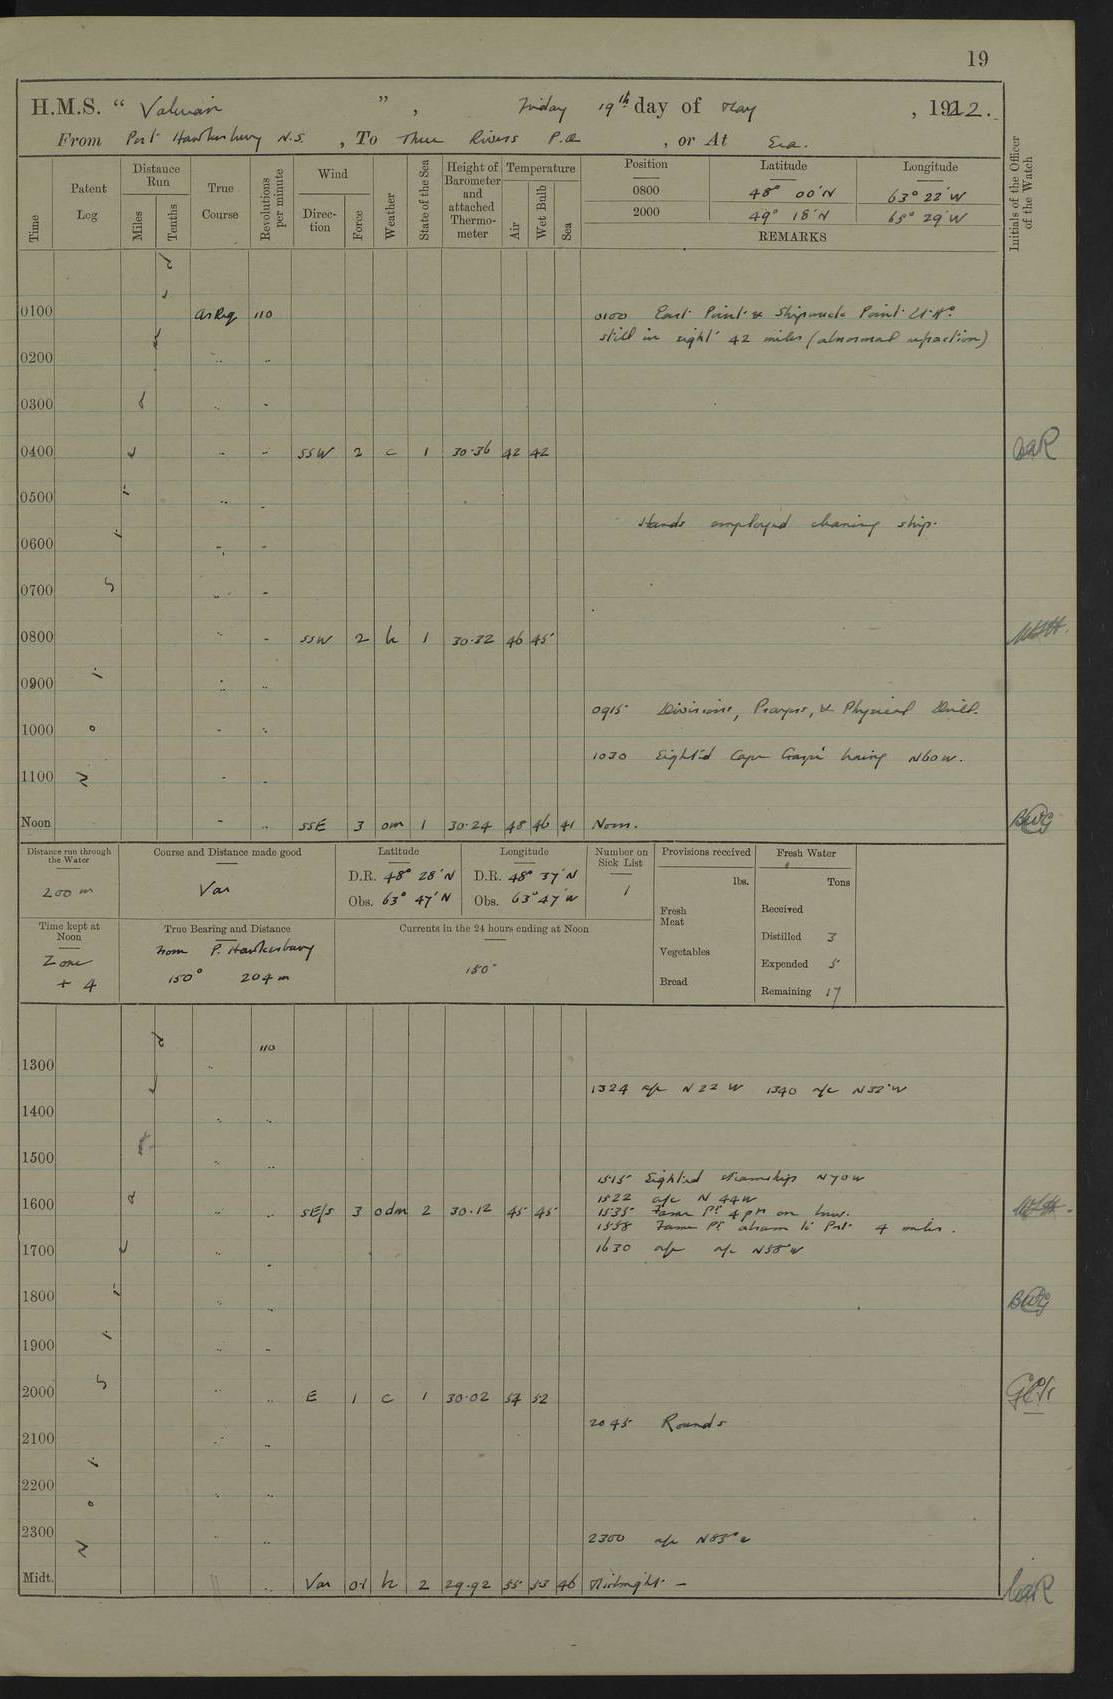 19
H.M.S. " Valerian " , Friday 19th day of May , 1922.
From Port Hawkesbury N.S. , To Three Rivers P.Q. , or At Sea.
Time
Patent Log
Distance Run
Miles
Tenths
True Course
Revolutions per minute
Wind
Direc-tion
Force
Weather
State of the Sea
Height of Barometer and attached Thermo-meter
Temperature
Air
Wet Bulb
Sea
Position Latitude Longitude
0800 48° 00'N 63° 22'W
2000 49° 18'N 65° 29'W
REMARKS
Initials of the Officer of the Watch
0100 as Req 110 0100 East Point & Shipwreck Point Lt. Ho
still in sight 42 miles (abnormal refraction)
0200 " "
0300 " "
0400 " " SSW 2 c 1 30.36 42 42
0500 " "
Hands employed cleaning ship.
0600 " "
0700 " "
0800 " " SSW 2 b 1 30.32 46 45
0900 " "
0915 Divisions, Prayers, & Physical Drill.
1000 " "
1030 Sighted Cape Gaspé bearing N60W.
1100 " "
Noon " " SSE 3 om 1 30.24 48 46 41 Noon. BWG
No Distilled
Distance run through the Water
200 m
Course and Distance made good
Var
Latitude
D.R. 48° 28'N
Obs. 63° 47'N
Longitude
D.R. 48° 37'N
Obs. 63° 47'W
Number on Sick List
1
Provisions received
lbs.
Fresh Meat
Vegetables
Bread
Fresh Water
Tons
Received
Distilled 3
Expended 5
Remaining 17
Time kept at Noon
Zone + 4
True Bearing and Distance
from P. Hawkesbury
150° 204 m
Currents in the 24 hours ending at Noon
150
1300 " 110
1324 a/c N 22 W 1340 a/c N32°W
1400 " "
1500 " "
1515 Sighted steamship N70W
1522 a/c N 44W
1600 " " SE/S 3 odm 2 30.12 45 45 1535 Fame Pt 4 pts on bow.
1558 Fame Pt abeam to Port 4 miles.
1700 " " 1630 a/c a/c N58°W
1800 " " BWG
1900 " "
2000 " " E 1 c 1 30.02 54 52
2045 Rounds
2100 " "
2200 " "
2300 " " 2300 a/c N85°W
Midt. " " Var 0-1 b 2 29.92 55 53 46 Midnight. —